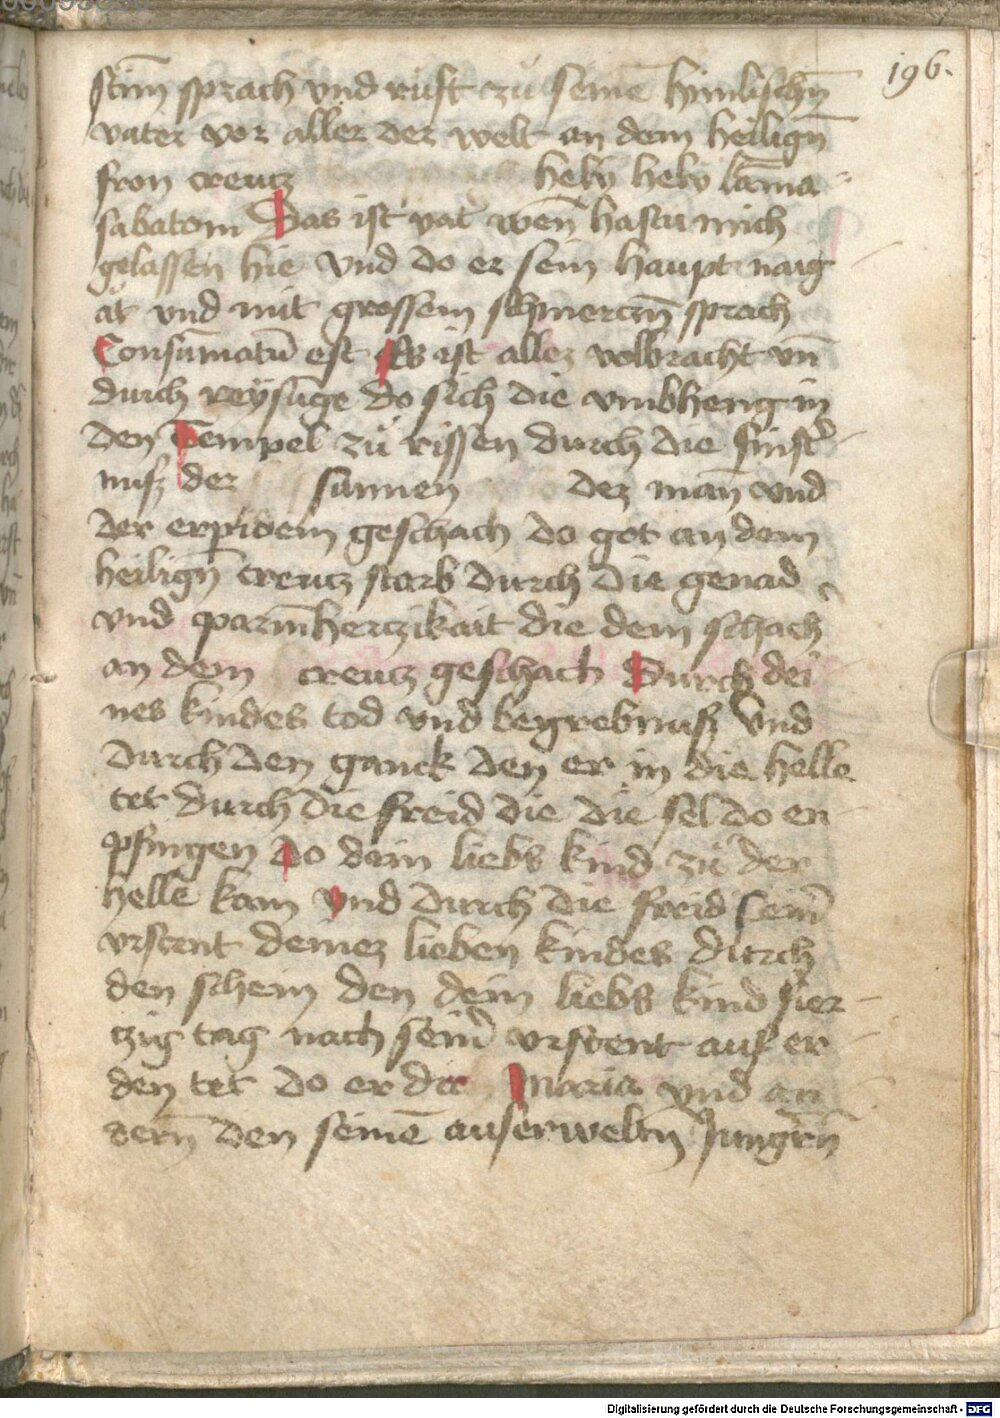 196.
stim̄ sprach vnd rüft zü seinē himlischn̄
vater vor aller der welt an dem heilign̄
fron creutz hely hely lāma
sabatani Das ist vat̄ wen̄ hastu mich
gelassen hie vnd do er sein haupt naig
āt vnd mit grossem schmerczn̄ sprach
Consūmatū est Es ist allez volbracht vn̄
durch do sich die vmbheng in
den Tempel zü rissen durch die finst̄
nusz der sunnen dez man̄ vnd
der erpidem geschach do got an dem
heilign̄ creutz starb durch die genad
vnd parm̄herczikait die dem schach
an dem creutz geschach Durch dei
nes kindes tod vnd begrebnusz vnd
durch den ganck den er in die helle
tet durch die freid die die sel do en
pfingen Do dein liebs kind zü der
helle kam vnd durch die freid seīn̄
vrstent deinez lieben kindes durch
den schein den dein liebs kind fier
tzig tag nach sein̄ vrstent auf er
den tet do er dir maria vnd an
dern̄ den seinē auserweltn̄ Jungern̄
Digitalisierung gefördert durch die Deutsche Forschungsgemeinschaft - DFG